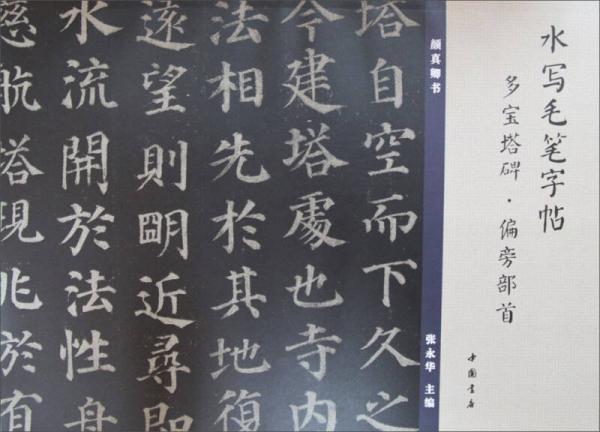 水写毛笔字帖
多宝塔碑·偏旁部首
中国书店
颜真卿书
张永华 主编
塔自空而下久之
今建塔處也寺内
法相先於其地復
遠望則明近尋即
水流開於法性舟
慈航塔現兆於有